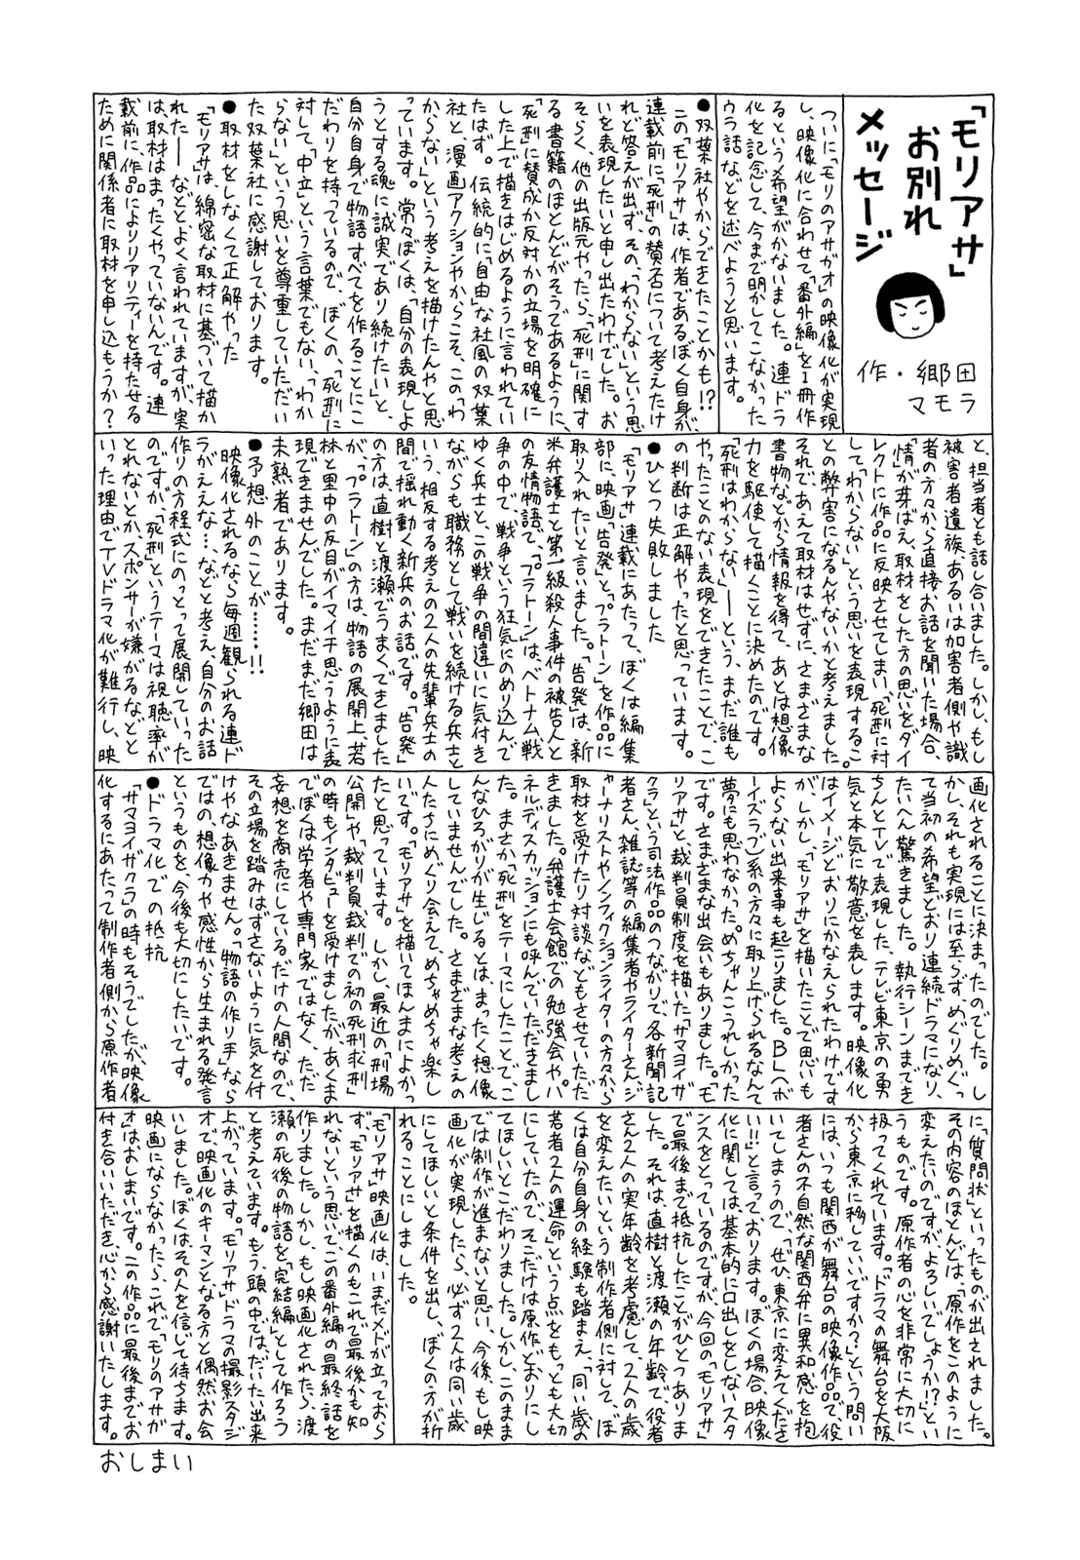 「モリアサ」
お別れ
メッセージ
作・郷田
マモラ
ついに「モリのアサガオ」の映像化が実現
し、映像化に合わせて「番外編」を1冊作
るという希望がかないました。連ドラ
化を記念して、今まで明かしてこなかった
ウラ話などを述べようと思います。
●双葉社やからできたことかも!?
この「モリアサ」は、作者であるぼく自身が、
連載前に、「死刑」の賛否について考えたけ
れど答えが出ず、その、「わからない」という思
いを表現したいと申し出たわけでした。お
そらく、他の出版元やったら、「死刑」に関す
る書籍のほとんどがそうであるように、
「死刑」に賛成か反対かの立場を明確に
した上で描きはじめるように言われてい
たはず。伝統的に「自由」な社風の双葉
社と、漫画アクションやからこそ、この「わ
からない」という考えを描けたんやと思
っています。常々ぼくは、「自分の表現しよ
うとする魂に誠実であり続けたい」と、
自分自身で物語すべてを作ることにこ
だわりを持っているので、ぼくの、「死刑」に
対して「中立」という言葉でもない、「わか
らない」という思いを尊重していただい
た双葉社に感謝しております。
●取材をしなくて正解やった
「モリアサ」は、綿密な取材に基づいて描か
れた——などとよく言われていますが、実
は、取材はまったくやっていないんです。連
載前に、作品によりリアリティーを持たせる
ために関係者に取材を申し込もうか?
と、担当者とも話し合いました。しかし、もし
被害者遺族、あるいは加害者側や識
者の方々から直接お話を聞いた場合、
「情」が芽ばえ、取材をした方の思いをダイ
レクトに作品に反映させてしまい、「死刑」に対
して「わからない」という思いを表現するこ
との弊害になるんやないかと考えました。
それであえて取材はせずに、さまざまな
書物などから情報を得て、あとは想像
力を駆使して描くことに決めたのです。
「死刑はわからない」——という、まだ誰も
やったことのない表現をできたことで、こ
の判断は正解やったと思っています。
●ひとつ失敗しました
「モリアサ」連載にあたって、ぼくは編集
部に、映画「告発」と「プラトーン」を作品に
取り入れたいと言いました。「告発」は、新
米弁護士と第一級殺人事件の被告人と
の友情物語で、「プラトーン」は、ベトナム戦
争の中で、戦争という狂気にのめり込んで
ゆく兵士と、この戦争の間違いに気付き
ながらも職務として戦いを続ける兵士と
いう、相反する考えの2人の先輩兵士の
間で揺れ動く新兵のお話です。「告発」
の方は、直樹と渡瀬でうまくできました
が、「プラトーン」の方は、物語の展開上、若
林と里中の反目がイマイチ思うように表
現できませんでした。まだまだ郷田は
未熟者であります。
●予想外のことが……!!
映像化されるなら毎週観られる連ド
ラがええな…、などと考え、自分のお話
作りの方程式にのっとって展開していった
のですが、「死刑」というテーマは視聴率が
とれないとか、スポンサーが嫌がるなどと
いった理由でTVドラマ化が難行し、映
画化されることに決まったのでした。し
かし、それも実現には至らず、めぐりめぐっ
て当初の希望どおり連続ドラマになり、
たいへん驚きました。執行シーンまでき
ちんとTVで表現した、テレビ東京の勇
気と本気に敬意を表します。映像化
はイメージどおりにかなえられたわけです
が、しかし、「モリアサ」を描いたことで思いも
よらない出来事も起こりました。BL(ボ
ーイズラブ)系の方々に取り上げられるなんて
夢にも思わなかった。めちゃんこうれしかった
です。さまざまな出会いもありました。「モ
リアサ」と、裁判員制度を描いた「サマヨイザ
クラ」という司法作品のつながりで、各新聞記
者さん、雑誌等の編集者やライターさん、ジ
ャーナリストやノンフィクションライターの方々から
取材を受けたり対談などもさせていただ
きました。弁護士会館での勉強会やパ
ネルディスカッションにも呼んでいただきまし
た。まさか「死刑」をテーマにしたことで、こ
んなひろがりが生じるとはまったく想像
していませんでした。さまざまな考えの
人たちにめぐり会えて、めちゃめちゃ楽し
いです。「モリアサ」を描いてほんまによかっ
たと思っています。しかし、最近の「刑場
公開」や「裁判員裁判での初の死刑求刑」
の時もインタビューを受けましたが、あくま
でぼくは学者や専門家ではなく、ただ
妄想を商売にしているだけの人間なので、
その立場を踏みはずさないように気を付
けやなあきません。「物語の作り手」なら
ではの、想像力や感性から生まれる発言
というものを、今後も大切にしたいです。
●ドラマ化での抵抗
「サマヨイザクラ」の時もそうでしたが、映像
化するにあたって制作者側から原作者
に「質問状」といったものが出されました。
その内容のほとんどは、「原作をこのように
変えたいのですがよろしいでしょうか?」とい
うものです。原作者の心を非常に大切に
扱ってくれています。「ドラマの舞台を大阪
から東京に移していいですか?」という問い
には、いつも関西が舞台の映像作品で、役
者さんの不自然な関西弁に異和感を抱
いてしまうので、「ぜひ東京に変えてくださ
い!!」と言っております。ぼくの場合、映像
化に関しては、基本的に口出しをしないスタ
ンスをとっているのですが、今回の「モリアサ」
で最後まで抵抗したことがひとつありま
した。それは、直樹と渡瀬の年齢で、役者
さん2人の実年齢を考慮して、2人の歳
を変えたいという制作者側に対して、ぼ
くは自分自身の経験も踏まえ、「同い歳の
若者2人の運命」という点をもっとも大切
にしていたので、そこだけは原作どおりにし
てほしいとこだわりました。しかし、このまま
では制作が進まないと思い、今後、もし映
画化が実現したら、必ず2人は同い歳
にしてほしいと条件を出し、ぼくの方が折
れることにしました。
「モリアサ」映画化は、いまだメドが立っておら
ず、「モリアサ」を描くのもこれで最後かも知
れないという思いで、この番外編の最終話を
作りました。しかし、もし映画化されたら、渡
瀬の死後の物語を「完結編」として作ろう
と考えています。もう頭の中ではだいたい出来
上がっています。「モリアサ」ドラマの撮影スタジ
オで、映画化のキーマンとなる方と偶然お会
いしました。ぼくはその人を信じて待ちます。
映画にならなかったら、これで「モリのアサガ
オ」はおしまいです。この作品に最後までお
付き合いいただき、心から感謝いたします。
おしまい